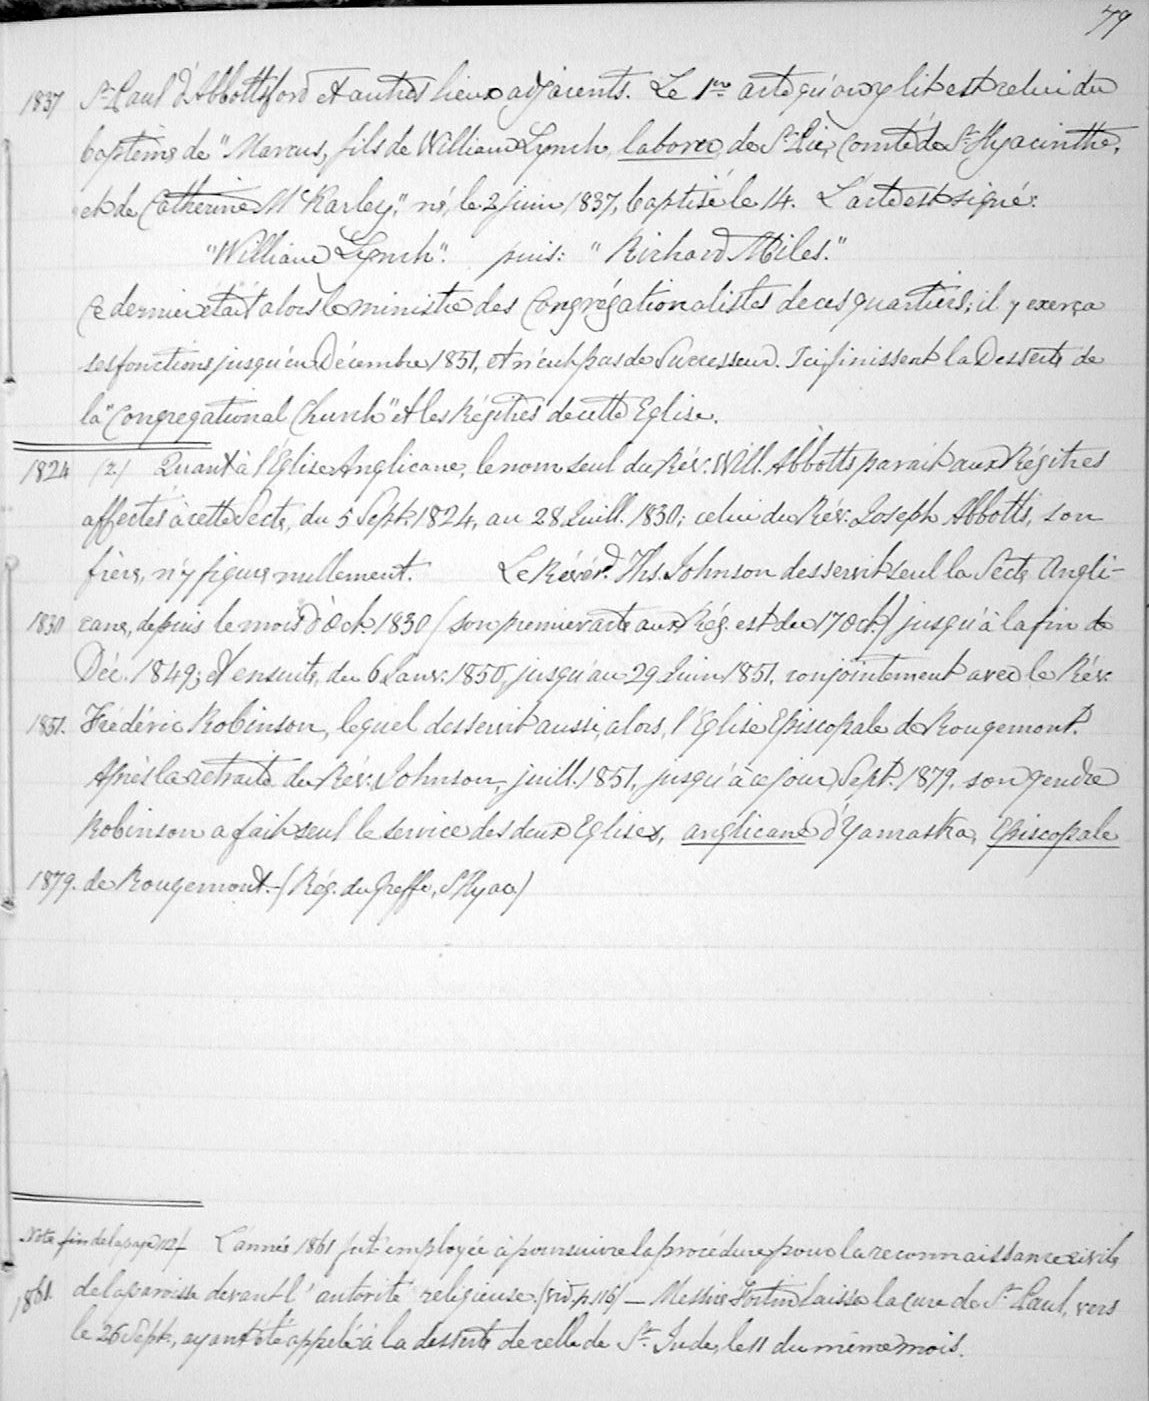 79
1837 St Paul d'Abbottsford et autres lieux adjacents. Le 1er acte qu'on y lit est celui du
baptême de "Marcus, fils de William Lynch, laborer, de St Pie, Comté de St Hyacinthe,
et de Catherine McKarley," né, le 2 juin 1837, baptisé le 14. L'acte est signé:
"William Lynch". puis: "Richard Miles."
Ce dernier était alors le ministre des Congrégationalistes de ces quartiers; il y exerça
ses fonctions jusqu'en Décembre 1851, et n'eut pas de Successeur. Ici finissent la Desserte de
la "Congregational Church" et les Régitres de cette Eglise.
1824 (2) Quant à l'Église Anglicane, le nom seul du Rév. Will. Abbotts parait aux Régitres
affectés à cette Secte, du 5 Sept. 1824, au 28 Juill. 1830; celui du Rév. Joseph Abbotts, son
frère, n'y figure nullement. Le Révérd. Ths. Johnson desservit seul la Secte Angli-
1830 cane, depuis le mois d'Oct. 1830 (son premier acte aux Rég. est du 17 Oct.) jusqu'à la fin de
Déc. 1849; et ensuite, du 6 Janv. 1850, jusqu'au 29 Juin 1851, conjointement avec le Rév.
1851. Frédéric Robinson, lequel desservit aussi, alors, l'Eglise Episcopale de Rougemont.
Après la retraite du Rév. Johnson, juill. 1851, jusqu'à ce jour, Sept. 1879, son gendre
Robinson a fait seul le service des deux Eglises, anglicane d'Yamaska, Episcopale
1879. de Rougemont.-(Rég. du Greffe, S Hyac)
Note fin de la page 112/ L'année 1861 fut employée à poursuivre la procédure pour la reconnaissance civile
1861. de la paroisse devant l'autorité religieuse. (vid. p. 116) — Messire Fortin laisse la cure de St Paul, vers
le 26 Sept., ayant été appelé à la desserte de celle de St Jude, le 11 du même mois.